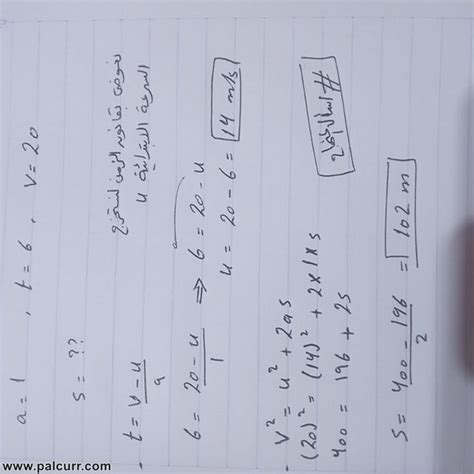 a = 1 , t = 6 , v = 20
s = ??
t = (v - u) / a
نعوض بقانون الزمن لنستخرج
السرعة الابتدائية u
6 = (20 - u) / 1 ⇒ 6 = 20 - u
u = 20 - 6 = 14 m/s
v² = u² + 2as
(20)² = (14)² + 2×1×s
400 = 196 + 2s
s = (400 - 196) / 2 = 102 m
www.palcurr.com